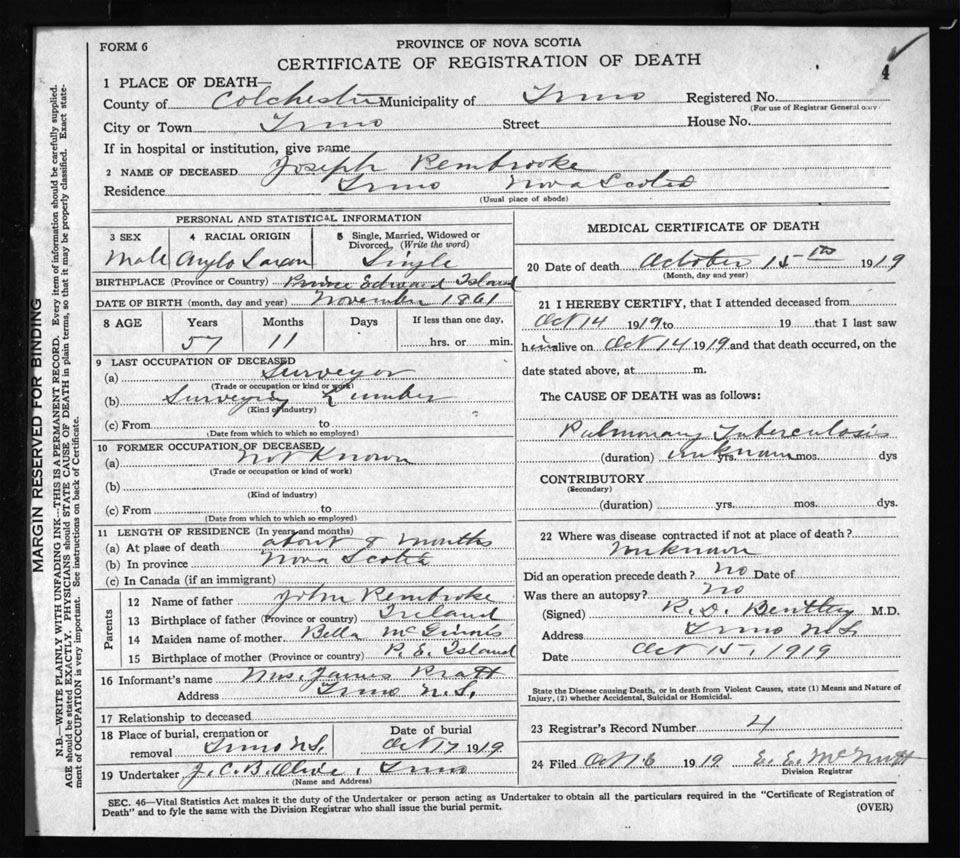 FORM 6
PROVINCE OF NOVA SCOTIA
CERTIFICATE OF REGISTRATION OF DEATH
4
1 PLACE OF DEATH—
County of Colchester Municipality of Truro Registered No.
(For use of Registrar General only.)
City or Town Truro Street House No.
If in hospital or institution, give name
2 NAME OF DECEASED Joseph Pembrooke
Residence Truro Nova Scotia
(Usual place of abode)
PERSONAL AND STATISTICAL INFORMATION
3 SEX Male
4 RACIAL ORIGIN Anglo Saxon
5 Single, Married, Widowed or Divorced, (Write the word) Single
BIRTHPLACE (Province or Country) Prince Edward Island
DATE OF BIRTH (month, day and year) November 1861
8 AGE Years 57 Months 11 Days If less than one day, hrs. or min.
9 LAST OCCUPATION OF DECEASED
(a) Surveyor
(Trade or occupation or kind of work)
(b) Surveying Lumber
(Kind of industry)
(c) From to
(Date from which to which so employed)
10 FORMER OCCUPATION OF DECEASED
(a) not known
(Trade or occupation or kind of work)
(b)
(Kind of industry)
(c) From to
(Date from which to which so employed)
11 LENGTH OF RESIDENCE (In years and months)
(a) At place of death about months
(b) In province Nova Scotia
(c) In Canada (if an immigrant)
Parents
12 Name of father John Pembroke
13 Birthplace of father (Province or country) Ireland
14 Maiden name of mother Bella McGinnis
15 Birthplace of mother (Province or country) P. E. Island
16 Informant's name Mrs. James Pratt
Address Truro N.S.
17 Relationship to deceased
18 Place of burial, cremation or removal Truro N.S.
Date of burial Oct 17 1919
19 Undertaker J. C. B. Olive, Truro
(Name and Address)
MEDICAL CERTIFICATE OF DEATH
20 Date of death October 15th 1919
(Month, day and year)
21 I HEREBY CERTIFY, that I attended deceased from
Oct 14 1919 to 19 that I last saw
him alive on Oct 14 1919 and that death occurred, on the
date stated above, at m.
The CAUSE OF DEATH was as follows:
Pulmonary Tuberculosis
(duration) unknown yrs. mos. dys
CONTRIBUTORY
(Secondary)
(duration) yrs. mos. dys.
22 Where was disease contracted if not at place of death?
unknown
Did an operation precede death? no Date of
Was there an autopsy? no
(Signed) R. D. Bentley M.D.
Address Truro N.S.
Date Oct 15, 1919
State the Disease causing Death, or in death from Violent Causes, state (1) Means and Nature of
Injury, (2) whether Accidental, Suicidal or Homicidal.
23 Registrar's Record Number 4
24 Filed Oct 1919 E. E. McNutt
Division Registrar
SEC. 46—Vital Statistics Act makes it the duty of the Undertaker or person acting as Undertaker to obtain all the particulars required in the "Certificate of Registration of
Death" and to fyle the same with the Division Registrar who shall issue the burial permit.
(OVER)
MARGIN RESERVED FOR BINDING
N.B.—WRITE PLAINLY WITH UNFADING INK—THIS IS A PERMANENT RECORD. Every item of information should be carefully supplied.
AGE should be stated EXACTLY. PHYSICIANS should STATE CAUSE OF DEATH in plain terms, so that it may be properly classified. Exact state-
ment of OCCUPATION is very important. See instructions on back of Certificate.